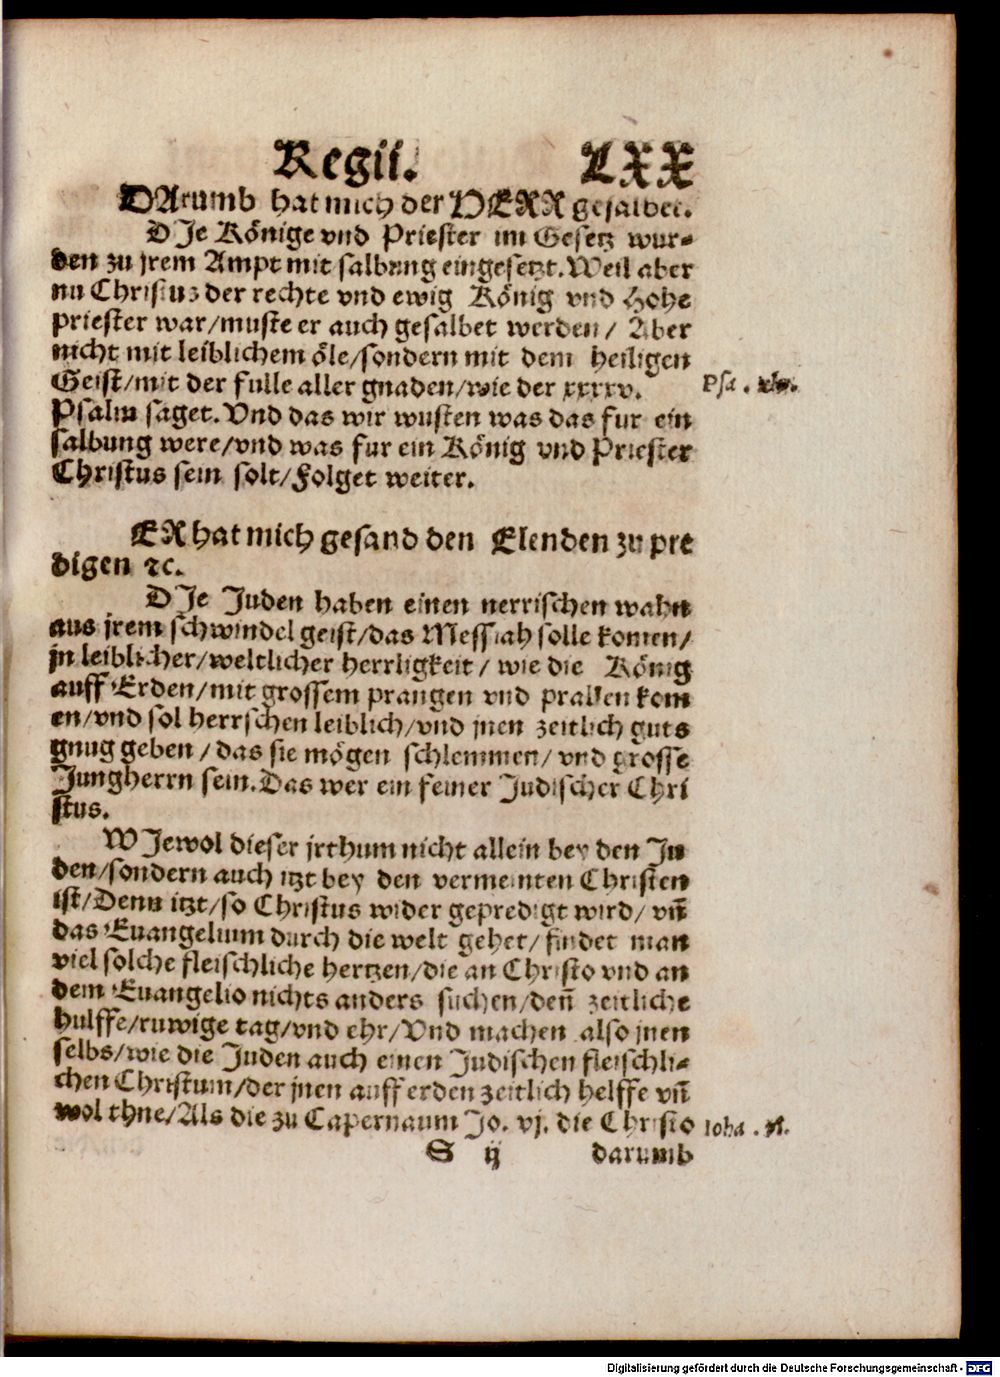 Regii. LXX
DArumb hat mich der HERR gesalbet.
DJe Könige vnd Priester im Gesetz wur-
den zu jrem Ampt mit salbung eingesetzt. Weil aber
nu Christus der rechte vnd ewig König vnd Hohe
priester war/muste er auch gesalbet werden/ Aber
nicht mit leiblichem öle/sondern mit dem heiligen
Geist/mit der fulle aller gnaden/wie der xxxxv.
Psa. xlv.
Psalm saget. Vnd das wir wusten was das fur ein
salbung were/vnd was fur ein König vnd Priester
Christus sein solt/Folget weiter.
ER hat mich gesand den Elenden zu pre
digen ꝛc.
DJe Juden haben einen nerrischen wahn
aus jrem schwindel geist/das Messiah solle komen/
jn leiblicher/weltlicher herrligkeit/ wie die König
auff Erden/mit grossem prangen vnd prallen kom
en/vnd sol herrschen leiblich/vnd jnen zeitlich guts
gnug geben/das sie mögen schlemmen/ vnd grosse
Jungherrn sein. Das wer ein feiner Judischer Chri
stus.
WJewol dieser jrthum nicht allein bey den Ju
den/sondern auch itzt bey den vermeinten Christen
ist/Denn itzt/so Christus wider gepredigt wird/ vñ
das Euangelium durch die welt gehet/ findet man
viel solche fleischliche hertzen/die an Christo vnd an
dem Euangelio nichts anders suchen/deñ zeitliche
hulffe/ruwige tag/vnd ehr/Vnd machen also jnen
selbs/wie die Juden auch einen Judischen fleischli-
chen Christum/der jnen auff erden zeitlich helffe vñ
wol thue/Als die zu Capernaum Jo. vj. die Christo
Ioha. vi.
S ij darumb
Digitalisierung gefördert durch die Deutsche Forschungsgemeinschaft - DFG